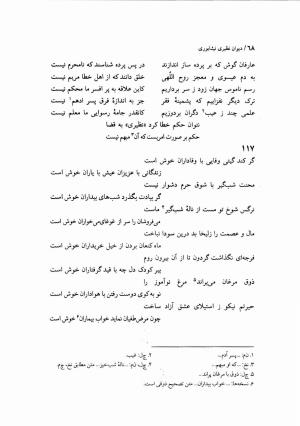 ۶۸/ دیوان نظیری نیشابوری
عارفان گوش که بر پرده ساز اندازند
در پس پرده شناسند که نامحرم نیست
به دم عیسوی و معجز روح اللّهی
خلق دانند که از اهل خطا مریم نیست
رسم ناموس جهان زود ز سر برداریم
کاین علاقه به پر افسر ما محکم نیست
ترک دیگر نفزاییم که پشمینهٔ فقر
جز به اندازهٔ فرق پسر ادهم۱ نیست
علمی چند ز عیب۲ دگران بردوزیم
کانقدر جامهٔ رسوایی ما معلم نیست
نتوان حکم خطا کرد «نظیری» به قضا
حکم بر صورت امریست که آن۳ مبهم نیست
۱۱۷
گر کند گیتی وفایی با وفاداران خوش است
زندگانی با عزیزان عیش با یاران خوش است
محنت شبگیر با شوق حرم دشوار نیست
گر بیادت بگذرد شب‌های بیداران خوش است
نرگس شوخ تو مست از نالهٔ شبگیر۴ ماست
می‌فروشان را سر از غوغای می‌خواران خوش است
مال و عصمت را زلیخا بد درین سودا نباخت
ماه کنعان بردن از خیل خریداران خوش است
فرجه‌ای نگذاشت گردون تا از آن بیرون روم
ببر کودک دل چه با قید گرفتاران خوش است
ذوق مرغان می‌پراند۵ مرغ نوآموز را
نو به کوی دوست رفتن با هواداران خوش است
حیرتم نیکو ز استیلای عشق آزاد ساخت
چون مرض‌طغیان نماید خواب بیماران۶ خوش است
۱. ن‌م: ...پسر آدم...
۲. ج‌ل: غیب
۳. نخ: ...که او مبهم...
۴. ج‌ل، ن‌م: ...نالهٔ شب‌خیز... متن مطابق نخ، ع‌م
۵. ج‌ل: ذوق با مرغان پراند...
۶. نسخه‌ها: ... خواب بیداران... متن تصحیح ذوقی است.